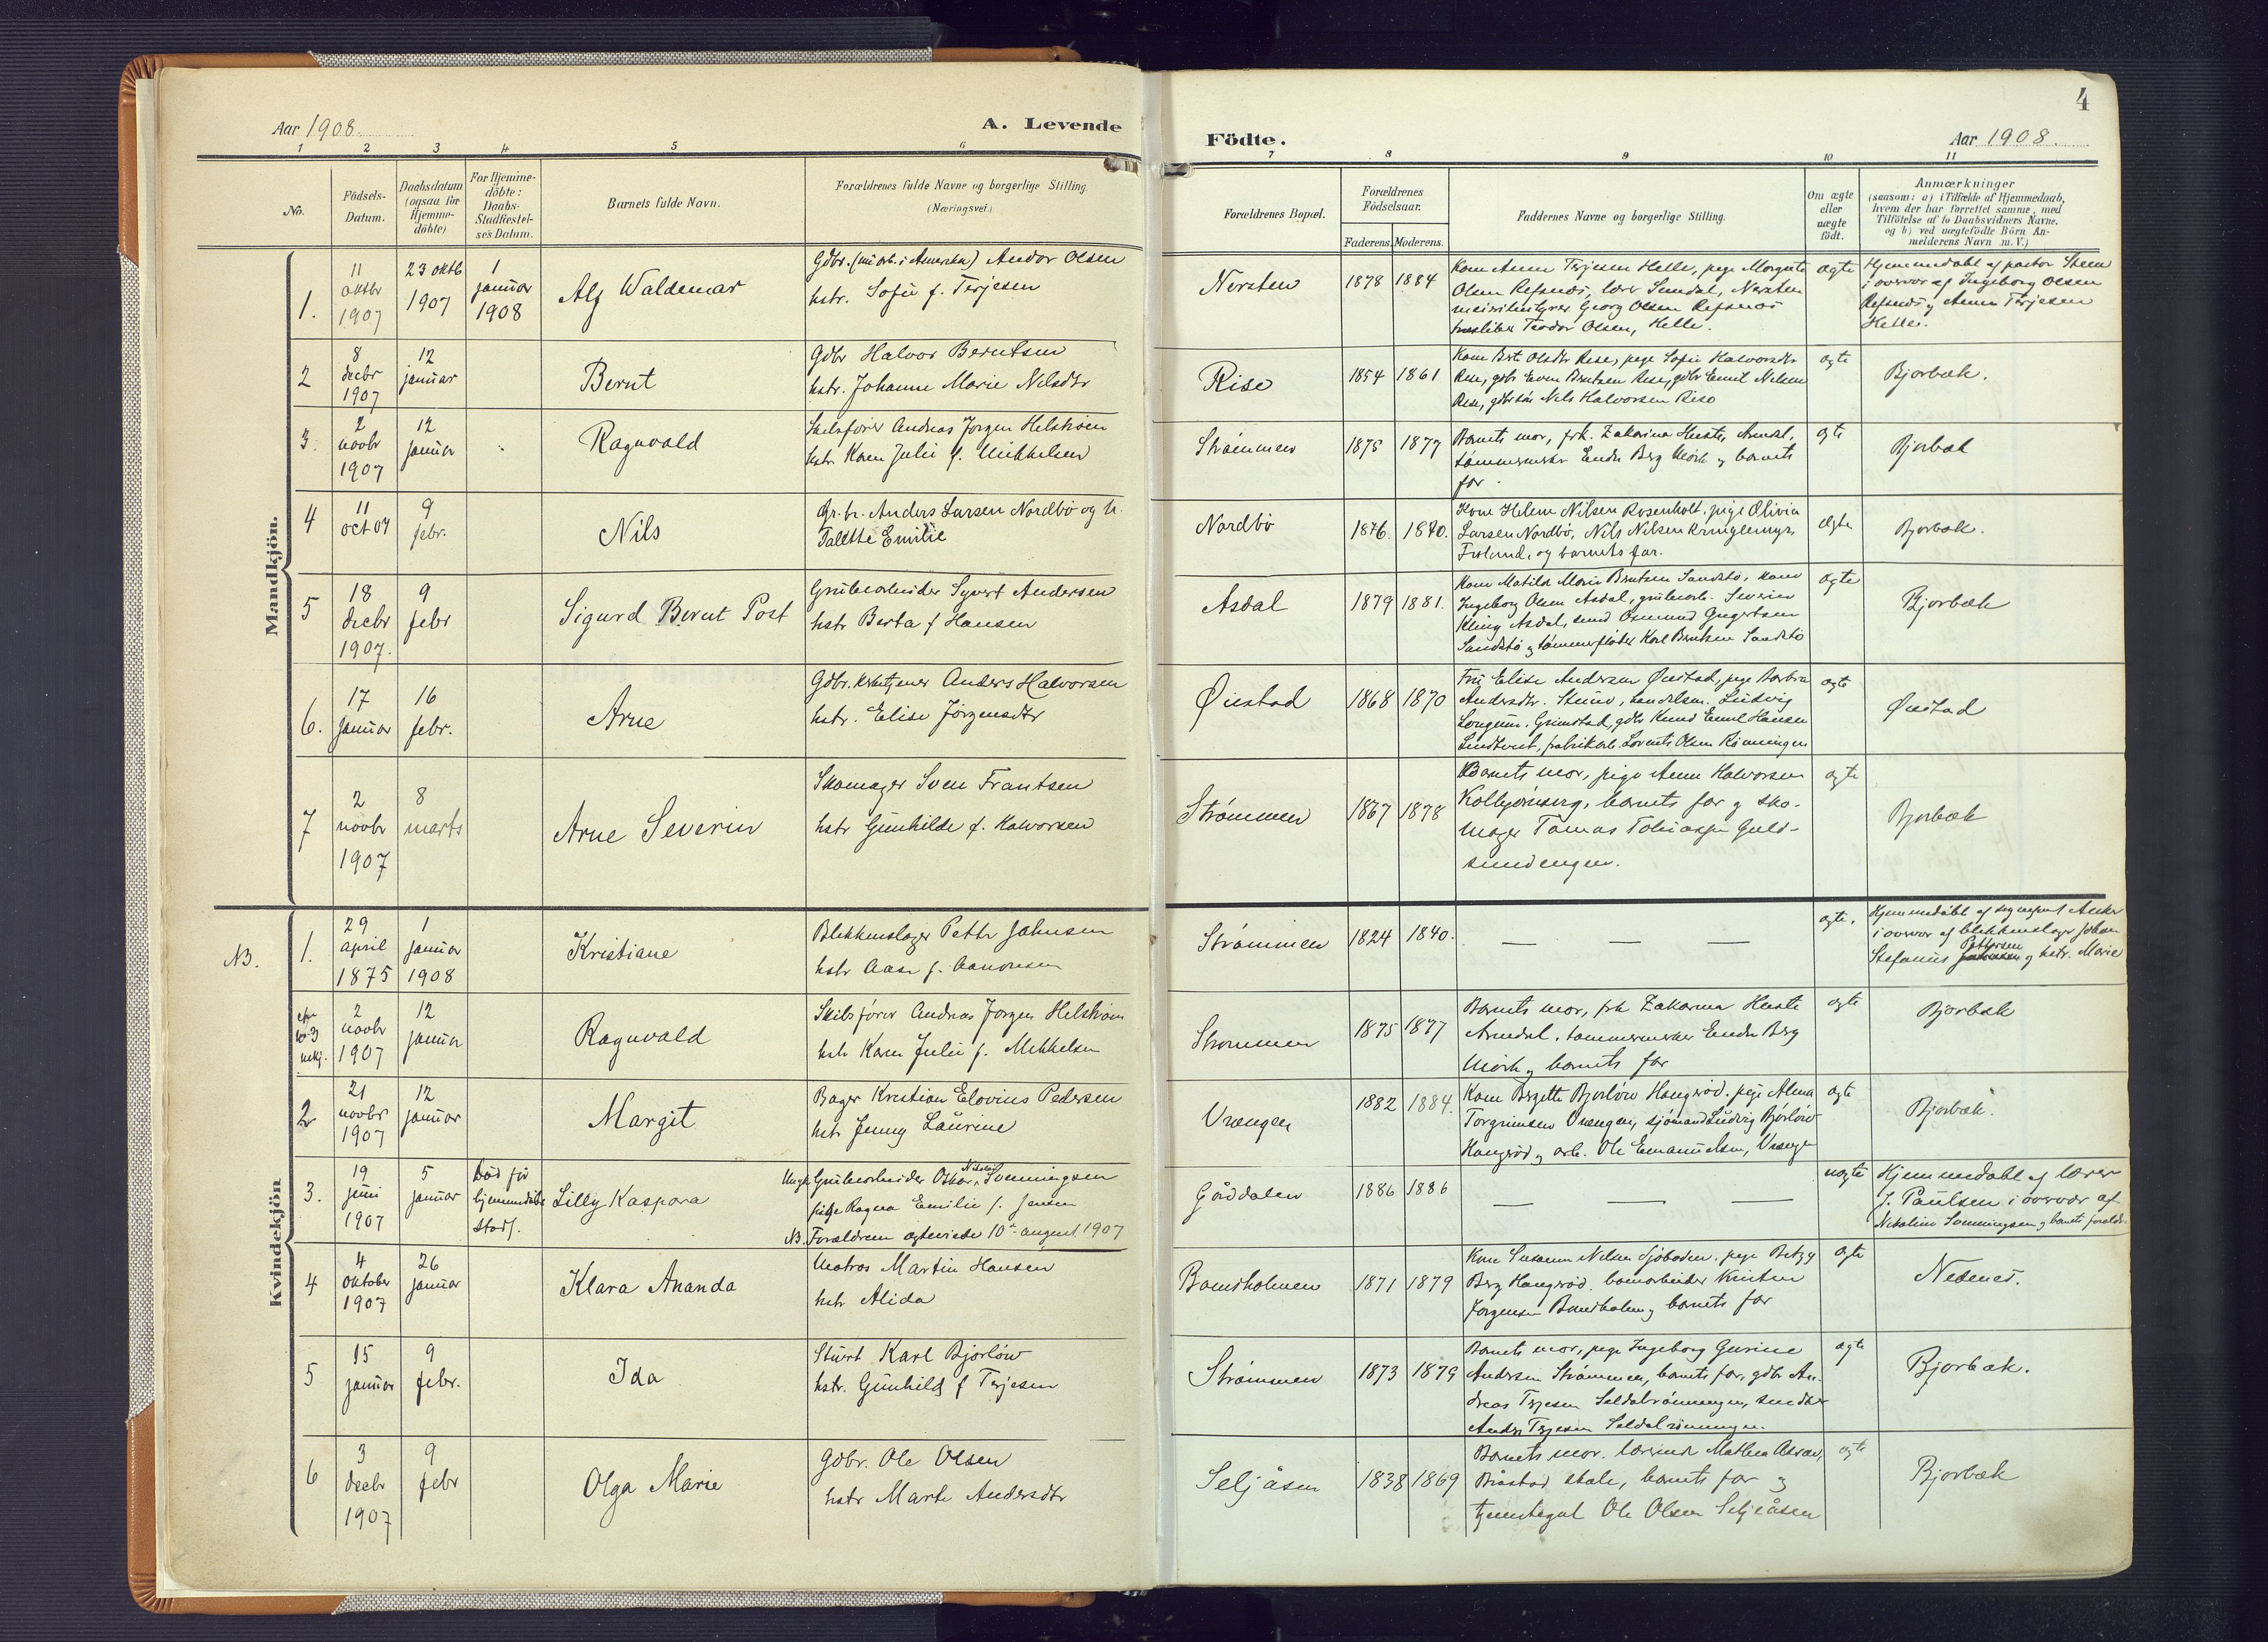 4
Aar 1908.
A. Levende
Födte.
Aar 1908.
1 2 3 4 5 6 7 8 9 10 11
No.
Födsels-
Datum.
Daabsdatum
(ogsaa for
Hjemme-
döbte)
For Hjemme-
döbte:
Daabs-
Stadfæstel-
ses Datum.
Barnets fulde Navn.
Forældrenes fulde Navne og borgerlige Stilling.
(Næringsvei.)
Forældrenes Bopæl.
Forældrenes
Födselsaar.
Faderens. Moderens.
Faddernes Navne og borgerlige Stilling.
Om ægte
eller
uægte
födt.
Anmærkninger
(saasom: a) i Tilfælde af Hjemmedaab,
hvem der har forrettet samme, med
Tilföielse af to Daabsvidners Navne,
og b) ved uægtefödte Börn An-
melderens Navn m. V.)
Mandkjön.
1.
11
oktbr
1907
23 oktb
1907
1
januar
1908
Alf Waldemar
Gdbr. (nu arb. i Amerika) Andor Olsen
hstr. Sofie f. Terjesen
Nersten
1878 1884
Kone Anna Terjesen Helle, pige Margate
Olsen Refsnæs, lærer Sundal, Nersten
Georg Olsen Refsnæs
Teodor Olsen, Helle.
ægte
Hjemmedøbt af pastor Steen
i overvær af Ingeborg Olsen
Refsnæs og Anna Terjesen
Helle.
2
8
decbr
1907
12
januar
Bernt
Gdbr Halvor Berntsen
hstr. Johanne Marie Nilsdtr
Rise
1854 1861
Kone Brt. Olsdtr Rise, pige Sofie Halvorsdtr
Rise, gdbr Even Berntsen Rise, gdbr Emil Nilsen
Rise, Nils Halvorsen Rise
ægte
Bjorbæk.
3.
2
novbr
1907
12
januar
Ragnvald
Skibsfører Andreas Jørgen Helstrøm
hstr. Karen Julie f. Mikkelsen
Strømmen
1875 1877
Barnets mor, frk. Zakarina Heste, Arendal,
tømmermester Endre Berg Mørk og barnets
far.
ægte
Bjorbæk
4
11
oct 07
9
febr.
Nils
Gr. br. Anders Larsen Nordbø og h.
Talette Emilie
Nordbö
1876. 1870.
Kone Helene Nilsen Rosenholt. pige Olivia
Larsen Nordbö, Nils Nilsen Kringlemyr,
Froland, og barnets far.
ægte
Bjorbæk.
5
18
decbr
1907.
9
febr
Sigurd Bernt Post
Grubearbeider Syvert Andersen
hstr Berta f Hansen
Asdal
1879 1881.
Kone Matilde Marie Berntsen Sandstø, kone
Ingeborg Olsen Asdal, grubearb. Severin
Kling Asdal, Osmund Gregertsen
Sandstø og tømmerfløter Karl Berntsen Sandstø
ægte
Bjorbæk
6.
17
januar
16
febr.
Arne
Gdbr. kirketjener Anders Halvorsen
hstr. Elise Jørgensdtr
Øiestad
1868 1870
Fru Elise Andersen Øiestad, pige Barbra
Andersdtr. Stuve, handelsm. Ludvig
Longum, Grimstad, gdbr Knud Emil Hansen
Lindtveit, fabrikarb. Lorents Olsen Rønningen
ægte
Øiestad
7
2
novbr
1907
8
marts
Arne Severin
Skomager Sven Frantsen
hstr Gunhilde f. Halvorsen
Strømmen
1867 1878
Barnets mor, pige Anna Halvorsen
Kolbjørnsvig, barnets far og sko-
mager Tomas Tobiassen Guld-
smedengen.
ægte
Bjorbæk
Kvindekjön
NB.
1.
29
april
1875
1
januar
1908
Kristiane
Blikkenslager Petter Johnsen
hstr Aase f. Aanonsen
Strømmen
1824 1840.
— — —
ægte.
Hjemmedøbt af
i overvær af blikkenslager Johan
Pettersen
Stefanus og hstr. Marie
efr
No 3
mkj.
2
novbr
1907
12
januar
Ragnvald
Skibsfører Andreas Jørgen Helstrøm
hstr Karen Julie f. Mikkelsen
Strømmen
1875 1877
Barnets mor, frk Zakarina Heste
Arendal, tømmermester Endre Berg
Mørk og barnets far
ægte
Bjorbæk
2
21
novbr
1907
12
januar
Margit
Bager Kristian Elovius Pedersen
hstr Jenny Laurine
Vrængen
1882 1884.
Kone Bergette Bjorløw Hangrød. pige Alma
Torgrimsen Vrængen, sjømand Ludvig Bjorløw
Hangrød og arb. Ole Emanuelsen, Vrænge
ægte
Bjorbæk.
3.
19
juni
1907
5
januar
død før
hjemmedaabs
stadf.
Lilly Kaspara
Ungk. Grubearbeider Oskar Nikolai Sønningsen
pige Ragna Emilie f. Jensen
NB. Forældrene ægteviede 10de august 1907
Gåddalen
1886 1886
— — —
uægte
Hjemmedøbt af lærer
J. Paulsen i overvær af
Nikoline Sønningsen og barnets forældre
4
4
oktober
1907
26
januar
Klara Ananda
Matros Martin Hansen
hstr Alida
Bomsholmen
1871 1879
Kone Susanne Nilsen Sjøboden. pige Betzy
Berg Hangrød. Kristen
Jørgensen Bomsholmen og barnets far
ægte
Nedenes.
5
15
januar
9
febr.
Ida
Stuert Karl Bjorløw
hstr. Gunhild f Terjesen
Strømmen
1873 1879
Barnets mor, pige Ingeborg Gurine
Andersen Strømmen, barnets far, gdbr An-
dreas Terjesen Seldalrønningen, snedker
Anders Terjesen Seldalrønningen.
ægte
Bjorbæk.
6
3
decbr
1907
9
febr
Olga Marie
Gdbr. Ole Olsen
hstr Marte Andersdtr
Seljåsen
1838 1869
Barnets mor. lærerinde Mathea
skole, barnets far og
tjenestegut Ole Olsen Seljeåsen
ægte
Bjorbæk